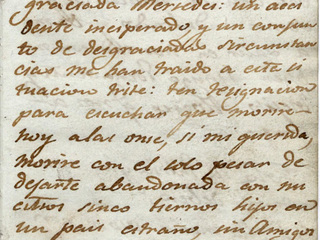 graciada Mercedes: un acci
dente inesperado, y un conjun
to de desgraciadas sircunstan
cias me han traido a esta ci
tuacion triste: ten resignacion
para escuchar que morire
hoy a las onse, si mi querida,
morire con el solo pesar de
dejarte abandonada con nu
estros sinco tiernos hijos en
un pais estraño, sin Amigos